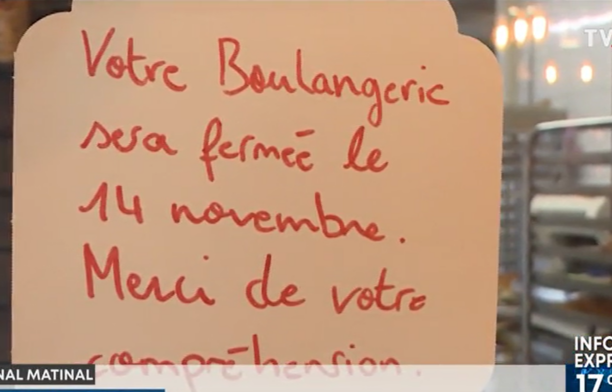 Votre Boulangerie
sera fermée le
14 novembre.
Merci de votre
compréhension.
TV
NAL MATINAL
INFO
EXPE
17